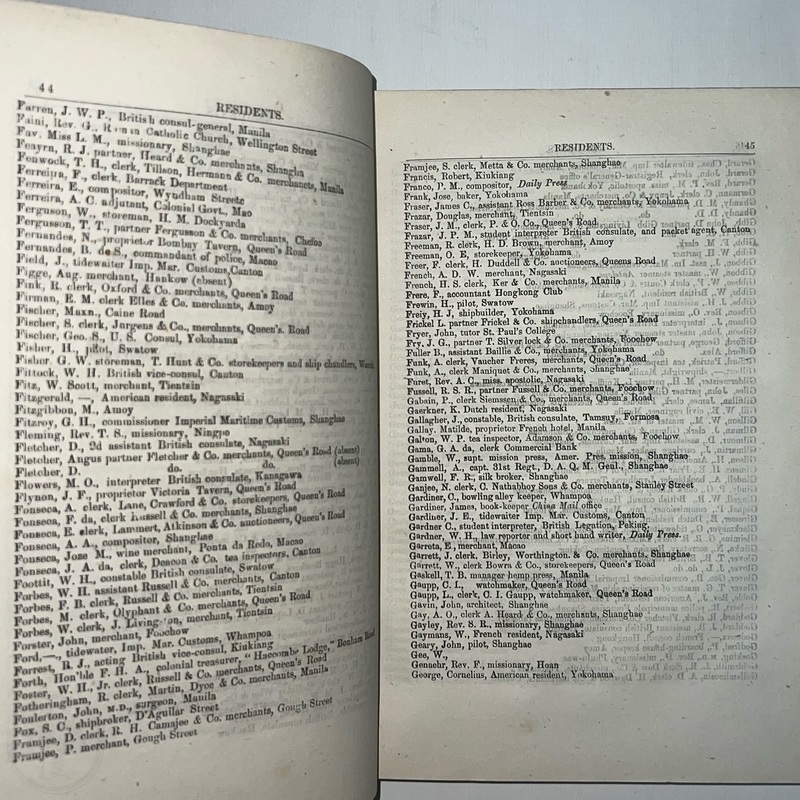 44
RESIDENTS.
Farren, J. W. P., British consul-general, Manila
Faini, Rev. G., Roman Catholic Church, Wellington Street
Fav. Miss L. M., missionary, Shanghae
Feayra, R. J. partner, Heard & Co. merchants, Shangha
Fenwock, T. H., clerk, Tillson, Hermann & Co. merchants, Manila
Ferreira, F., clerk, Barrack Department
Ferreira, E., compositor, Wyndham Streete
Ferreira, A. C. adjutant, Colonial Govt., Mao
Ferguson, W., storeman, H. M. Dockyarda
Fergusson, T. T., partner Fergusson & Co. merchants, Chefoo
Fernandes, N., proprietor Bombay Tavern, Queen's Road
Fernandes, B. de S., commandant of police, Macao
Field, J., tidewaiter Imp. Mar. Customs, Canton
Figge, Aug. merchant, Hankow (absent)
Fink, R. clerk, Oxford & Co. merchants, Queen's Road
Firman, E. M. clerk Elles & Co. merchants, Amoy
Fischer, Maxn., Caine Road
Fischer, S. clerk, Jurgens & Co., merchants, Queen's. Road
Fischer, Geo. S., U. S. Consul, Yokohama
Fisher, H., pilot, Swatow
Fisher. G. W. storeman, T. Hunt & Co. storekeepers and ship chandlers,
Fittock, W. H. British vice-consul, Canton
Fitz, W. Scott, merchant, Tientsin
Fitzgerald, —, American resident, Nagasaki
Fitzgibbon, M., Amoy
Fitzroy, G. H., commissioner Imperial Maritime Customs, Shanghae
Fleming, Rev. T. S., missionary, Ningpo
Fletcher, D., 2d assistant British consulate, Nagasaki
Fletcher, Angus partner Fletcher & Co. merchants, Queen's Road (absent)
Fletcher, D. do. do. (absent)
Flowers, M. O., interpreter British consulate, Kanagawa
Flynon, J. F., proprietor Victoria Tavern, Queen's Road
Fonseca, A. clerk, Lane, Crawford & Co. storekeepers, Queen's Road
Fonseca, F. da, clerk Russell & Co. merchants, Shanghae
Fonseca, E. clerk, Lammert, Atkinson & Co. auctioneers, Queen's Road
Fonseca, A. A., compositor, Shanghae
Fonseca, Joze M., wine merchant, Ponta da Redo, Macao
Fonseca, J. A. da, clerk, Deacon & Co. tea inspectors, Canton
Foottit, W. H., constable British consulate, Swatow
Forbes, W. H. assistant Russell & Co. merchants, Canton
Forbes, F. B. clerk, Russell & Co. merchants, Tientsin
Forbes, M. clerk, Olyphant & Co. merchants, Queen's Road
Forbes, W. clerk, J. Livingston, merchant, Tientsin
Forster, John, merchant, Foochow
Ford, —, tidewaiter, Imp. Mar. Customs, Whampoa
Forrest, R. J., acting British vice-consul, Kiukiang
Forth, Hon'ble F. H. A., colonial treasurer, "Haecombe Lodge," Bonham Road
Foster, W. H., Jr., clerk, Russell & Co. merchants, Queen's Road
Fotheringham, R. clerk, Martin, Dyce & Co., merchants, Manila
Foulerton, John, M.D., surgeon, Manila
Fox, S. C., shipbroker, D'Aguilar Street
Framjee, D. clerk, R. H. Camajee & Co. merchants, Gough Street
Framjee, P. merchant, Gough Street
RESIDENTS.
45
Framjee, S. clerk, Metta & Co. merchants, Shanghae
Francis, Robert, Kiukiang
Franco, P. M., compositor, Daily Press
Frank, Jose, baker, Yokohama
Fraser, James C., assistant Ross Barber & Co. merchants, Yokohama
Frazar, Douglas, merchant, Tientsin
Fraser, J. M., clerk, P. & O. Co., Queen's Road
Frazar, J. P. M., student interpreter British consulate, and packet agent, Canton
Freeman, R. clerk, H. D. Brown, merchant, Amoy
Freeman, O. E, storekeeper, Yokohama
Freer, F. clerk, H. Duddell & Co. auctioneers, Queens Road
French, A. D. W. merchant, Nagasaki
French, H. S. clerk, Ker & Co. merchants, Manila
Frere, F., accountant Hongkong Club
Frewin, H., pilot, Swatow
Freiy, H. J, shipbuilder, Yokohama
Frickel L. partner Frickel & Co. shipchandlers, Queen's Road
Fryer, John, tutor St. Paul's College
Fry. J. G.. partner T. Silver lock & Co. merchants, Foochow
Fuller B., assistant Baillie & Co., merchants, Yokohama
Funk, A. clerk, Vaucher Freres, merchants, Queen's Road
Funk, A., clerk Maniquet & Co., merchants, Shanghae
Furet, Rev. A. C., miss. apostolic, Nagasaki
Fussell, R. S. R., partner Fussell & Co. merchants, Foochow
Gabain, P., clerk Siemssen & Co., merchants, Queen's Road
Gaerkner, K. Dutch resident, Nagasaki
Gallagher, J., constable, British consulate, Tamsuy, Formosa
Gallay. Matilde, proprietor French hotel, Manila
Galton, W. P. tea inspector, Adamson & Co. merchants, Foochow
Gama, G. A. da, clerk Commercial Bank
Gamble, W., supt. mission press, Amer. Pres. mission, Shanghae
Gammell, A., capt. 31st Regt., D. A. Q. M. Genl., Shanghae
Gamwell, F. R., silk broker, Shanghae
Ganjee, N. clerk, C. Nathabhoy Sons & Co. merchants, Stanley Street
Gardiner, C., bowling alley keeper, Whampoa
Gardiner, James, book-keeper China Mail office
Gardner, J. E., tidewaiter Imp. Mar. Customs, Canton
Gardner C., student interpreter, British Legation, Peking.
Gardner, W. H., law reporter and short hand writer, Daily Press.
Garreta, E., merchant, Macao
Garrett, J. clerk, Birley, Worthington. & Co. merchants, Shanghae
Garrett, W., clerk Bowra & Co., storekeepers, Queen's Road
Gaskell, T. B. manager hemp press, Manila
Gaupp, C. I. watchmaker, Queen's Road
Gaupp, L., clerk, C. I. Gaupp, watchmaker, Queen's Road
Gavin, John, architect, Shanghae
Gay, A. O., clerk A. Heard & Co., merchants, Shanghae
Gayley, Rev. S. R., missionary, Shanghae
Gaymans, W., French resident, Nagasaki
Geary, John, pilot, Shanghae
Gee, W.,
Genaehr, Rev. F., missionary, Hoan
George, Cornelius, American resident, Yokohama